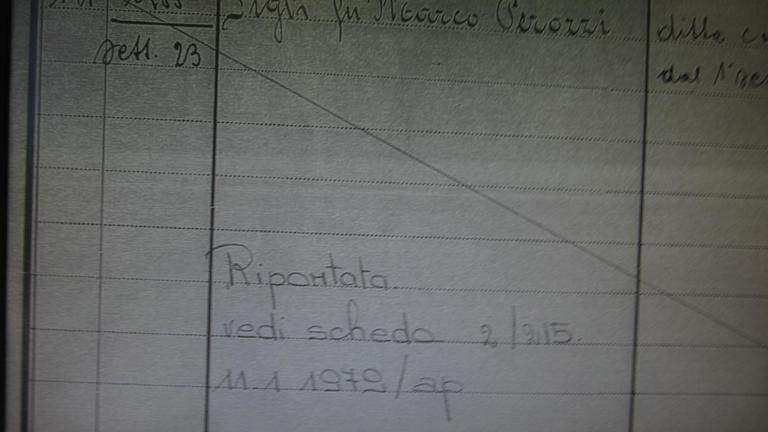 figli fu Marco Perozzi
sett. 23
dal
Riportata
vedi scheda 2/215.
11.1 1979/ap